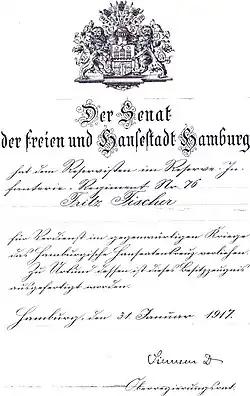 Der Senat
der freien und Hansestadt Hamburg
hat dem Reservisten im Reserve-In-
fanterie-Regiment Nr. 76
Fritz Fischer
für Verdienst im gegenwärtigen Kriege
das Hamburgische Hanseatenkreuz verliehen.
Zu Urkund dessen ist dieses Besitzzeugnis
ausgefertigt worden.
Hamburg, den 31. Januar 1917.
Oberregierungsrat.